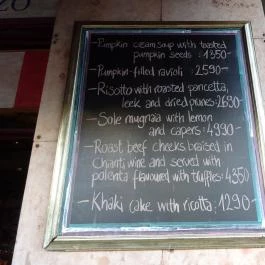 ZO
- Pumpkin cream soup with toasted
pumpkin seeds : 1350.-
- Pumpkin-filled ravioli : 2590.-
- Risotto with roasted pancetta,
leek and dried prunes: 2690.-
- Sole mugnaia with lemon
and capers : 4990.-
- Roast beef cheeks braised in
Chianti wine and served with
polenta flavoured with truffles: 4350
- Khaki cake with ricotta: 1290.-